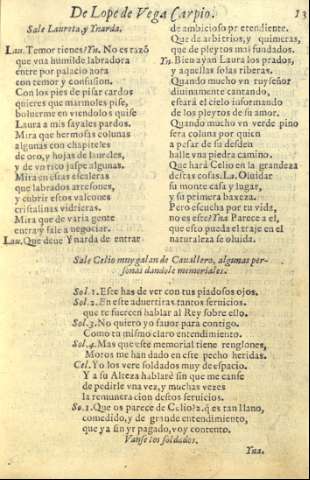 De Lope de Vega Carpio. 13
Sale Laureta y Ynarda.
Lau. Temor tienes? Yn. No es razõ
que vna humilde labradora
entre por palacio aora
con temor y confusion.
Con los pies de pisar cardos
quieres que marmoles pise,
boluerme en viendolos quise
Laura a mis sayales pardos.
Mira que hermosas colunas
algunas con chapiteles
de oro, y hojas de laureles,
y de vn rico jaspe algunas.
Mira en estas escaleras
que labrados artesones,
y cubrir estos valcones
cristalinas vidrieras.
Mira que de varia gente
entra y sale a negociar.
Lau. Que deue Ynarda de entrar
de ambicioso pretendiente.
Que de arbitrios, y quimeras,
que de pleytos mal fundados.
Yn. Bien ayan Laura los prados,
y aquellas solas riberas.
Quando mucho vn ruyseñor
diuinamente cantando,
estará el cielo informando
de los pleytos de su amor.
Quando mucho vn verde pino
sera coluna por quien
a pesar de su desden
halle vna piedra camino.
Que hará Celio en la grandeza
destas cosas. La. Oluidar
su monte casa y lugar,
y su primera baxeza.
Pero escucha por tu vida,
no es este? Yna Parece a el,
que esto pueda el traje en el
naturaleza se oluida.
Sale Celio muy galan de Cauallero, algunas per-
sonas dandole memoriales.
Sol. 1. Este has de ver con tus piadosos ojos.
Sol. 2. En este aduertiras tantos seruicios.
que te fuercen hablar al Rey sobre ello.
Sol. 3. No quiero yo fauor para contigo.
Como tu mismo claro entendimiento.
Sol. 4. Mas que este memorial tiene renglones,
Moros me han dado en este pecho heridas.
Cel. Yo los vere soldados muy de espacio.
Y a su Alteza hablaré sin que me canse
de pedirle vna vez, y muchas vezes
la remuneracion destos seruicios.
So. 1. Que os parece de Celio? 2. q̃ es tan llano,
comedido, y de grande entendimiento,
que ya sin yr pagado, voy contento.
Vanse los soldados.
Yna.